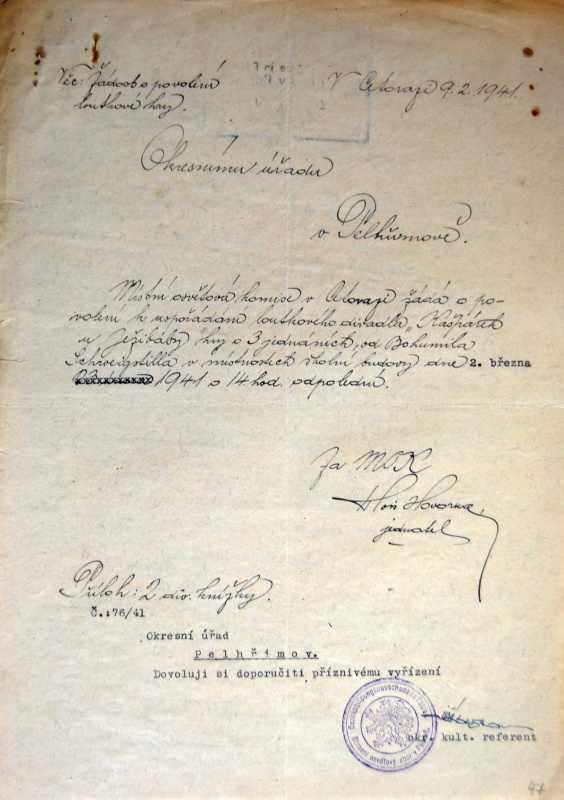 Věc: Žádost o povolení
loutkové hry.
V Cetorazi 9.2.1941.
Okresnímu úřadu
v Pelhřimově.
Místní osvětová komise v Cetorazi žádá o po-
volení k uspořádání loutkového divadla „Kašpárek
u Ježibáby" hry o 3 jednáních, od Bohumila
Schweigstilla v místnostech školní budovy dne 2. března
1941 o 14 hod. odpolední.
Za MOK
Hovorka,
jednatel
Příloh: 2 div. knížky.
Č.:76/41
Okresní úřad
Pelhřimov.
Dovoluji si doporučiti příznivému vyřízení
okr. kult. referent
47